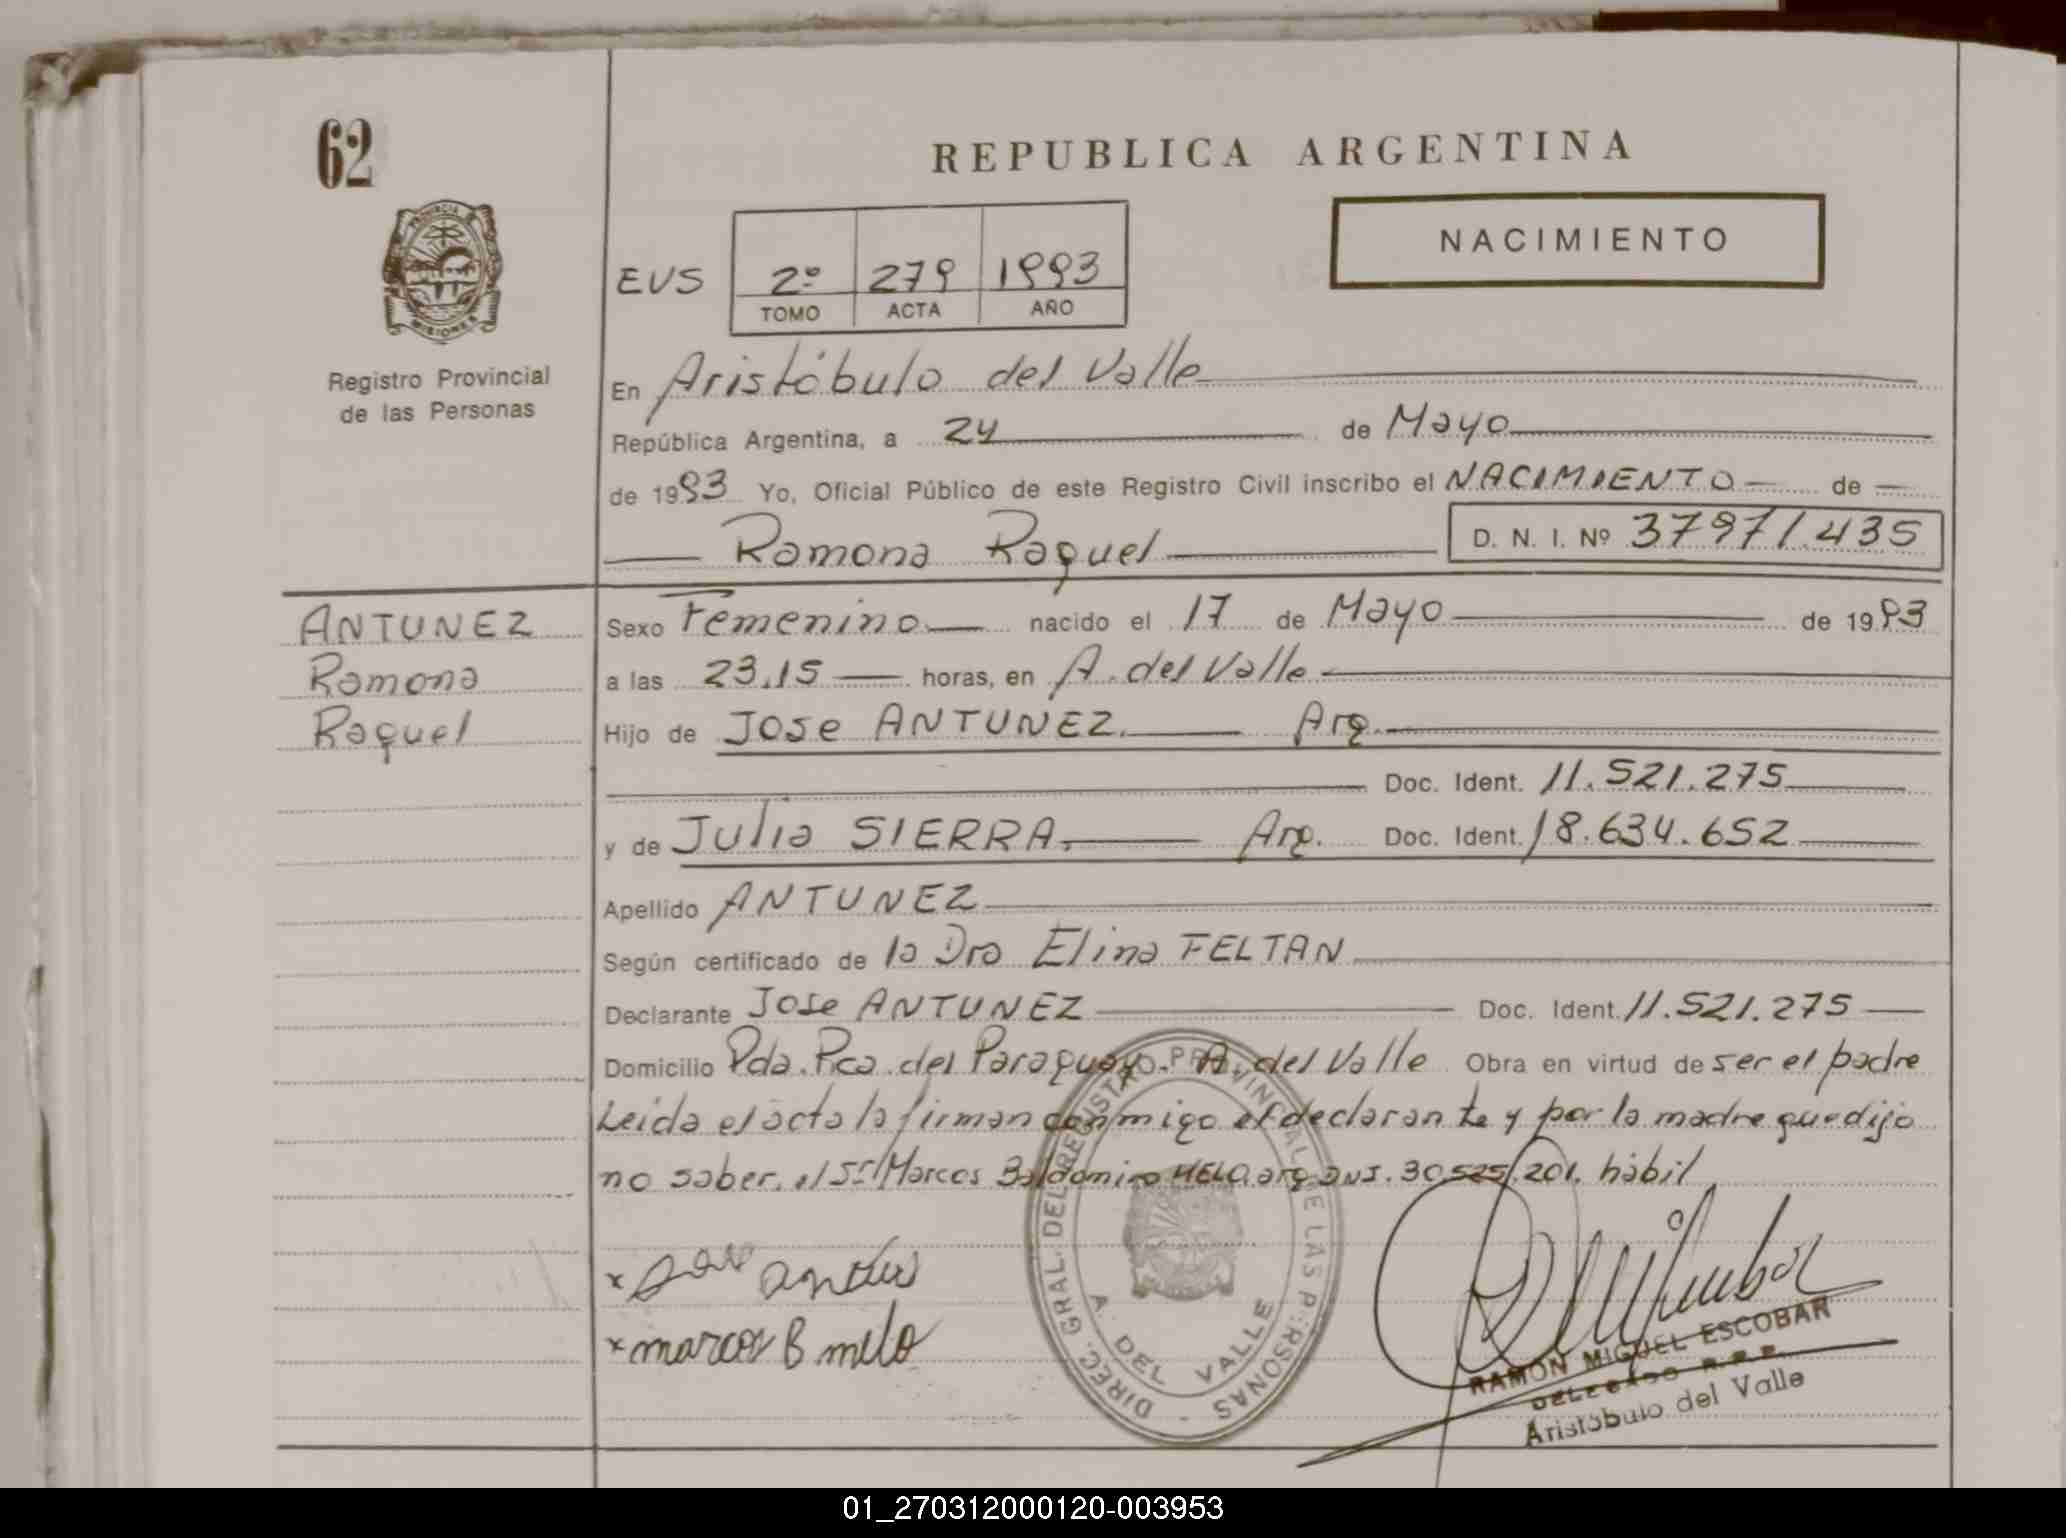 62
REPUBLICA ARGENTINA
NACIMIENTO
EUS 2º 279 1993
TOMO ACTA AÑO
PROVINCIA DE MISIONES
Registro Provincial
de las Personas
En Aristóbulo del Valle
República Argentina, a 24 de Mayo
de 1993 Yo, Oficial Público de este Registro Civil inscribo el NACIMIENTO de
Ramona Raquel D. N. I. Nº 37971.435
ANTUNEZ
Ramona
Raquel
Sexo Femenino nacido el 17 de Mayo de 1993
a las 23,15 horas, en A. del Valle
Hijo de Jose ANTUNEZ. Arg.
Doc. Ident. 11.521.275
y de Julia SIERRA. Arg. Doc. Ident. 18.634.652
Apellido ANTUNEZ
Según certificado de la Dra Elina FELTAN
Declarante Jose ANTUNEZ Doc. Ident. 11.521.275
Domicilio Pda. Pca. del Paraguay. A. del Valle Obra en virtud de ser el padre
Leida el acta la firman conmigo el declarante y por la madre que dijo
no saber, el Sr Marcos Baldomiro MELO, arg 30.525.201. hábil
marcos B melo
DIREC. GRAL. DEL REGISTRO PROVINCIAL DE LAS PERSONAS -
A. DEL VALLE
RAMON MIGUEL ESCOBAR
DELEGADO R.P.P.
Aristóbulo del Valle
01_270312000120-003953